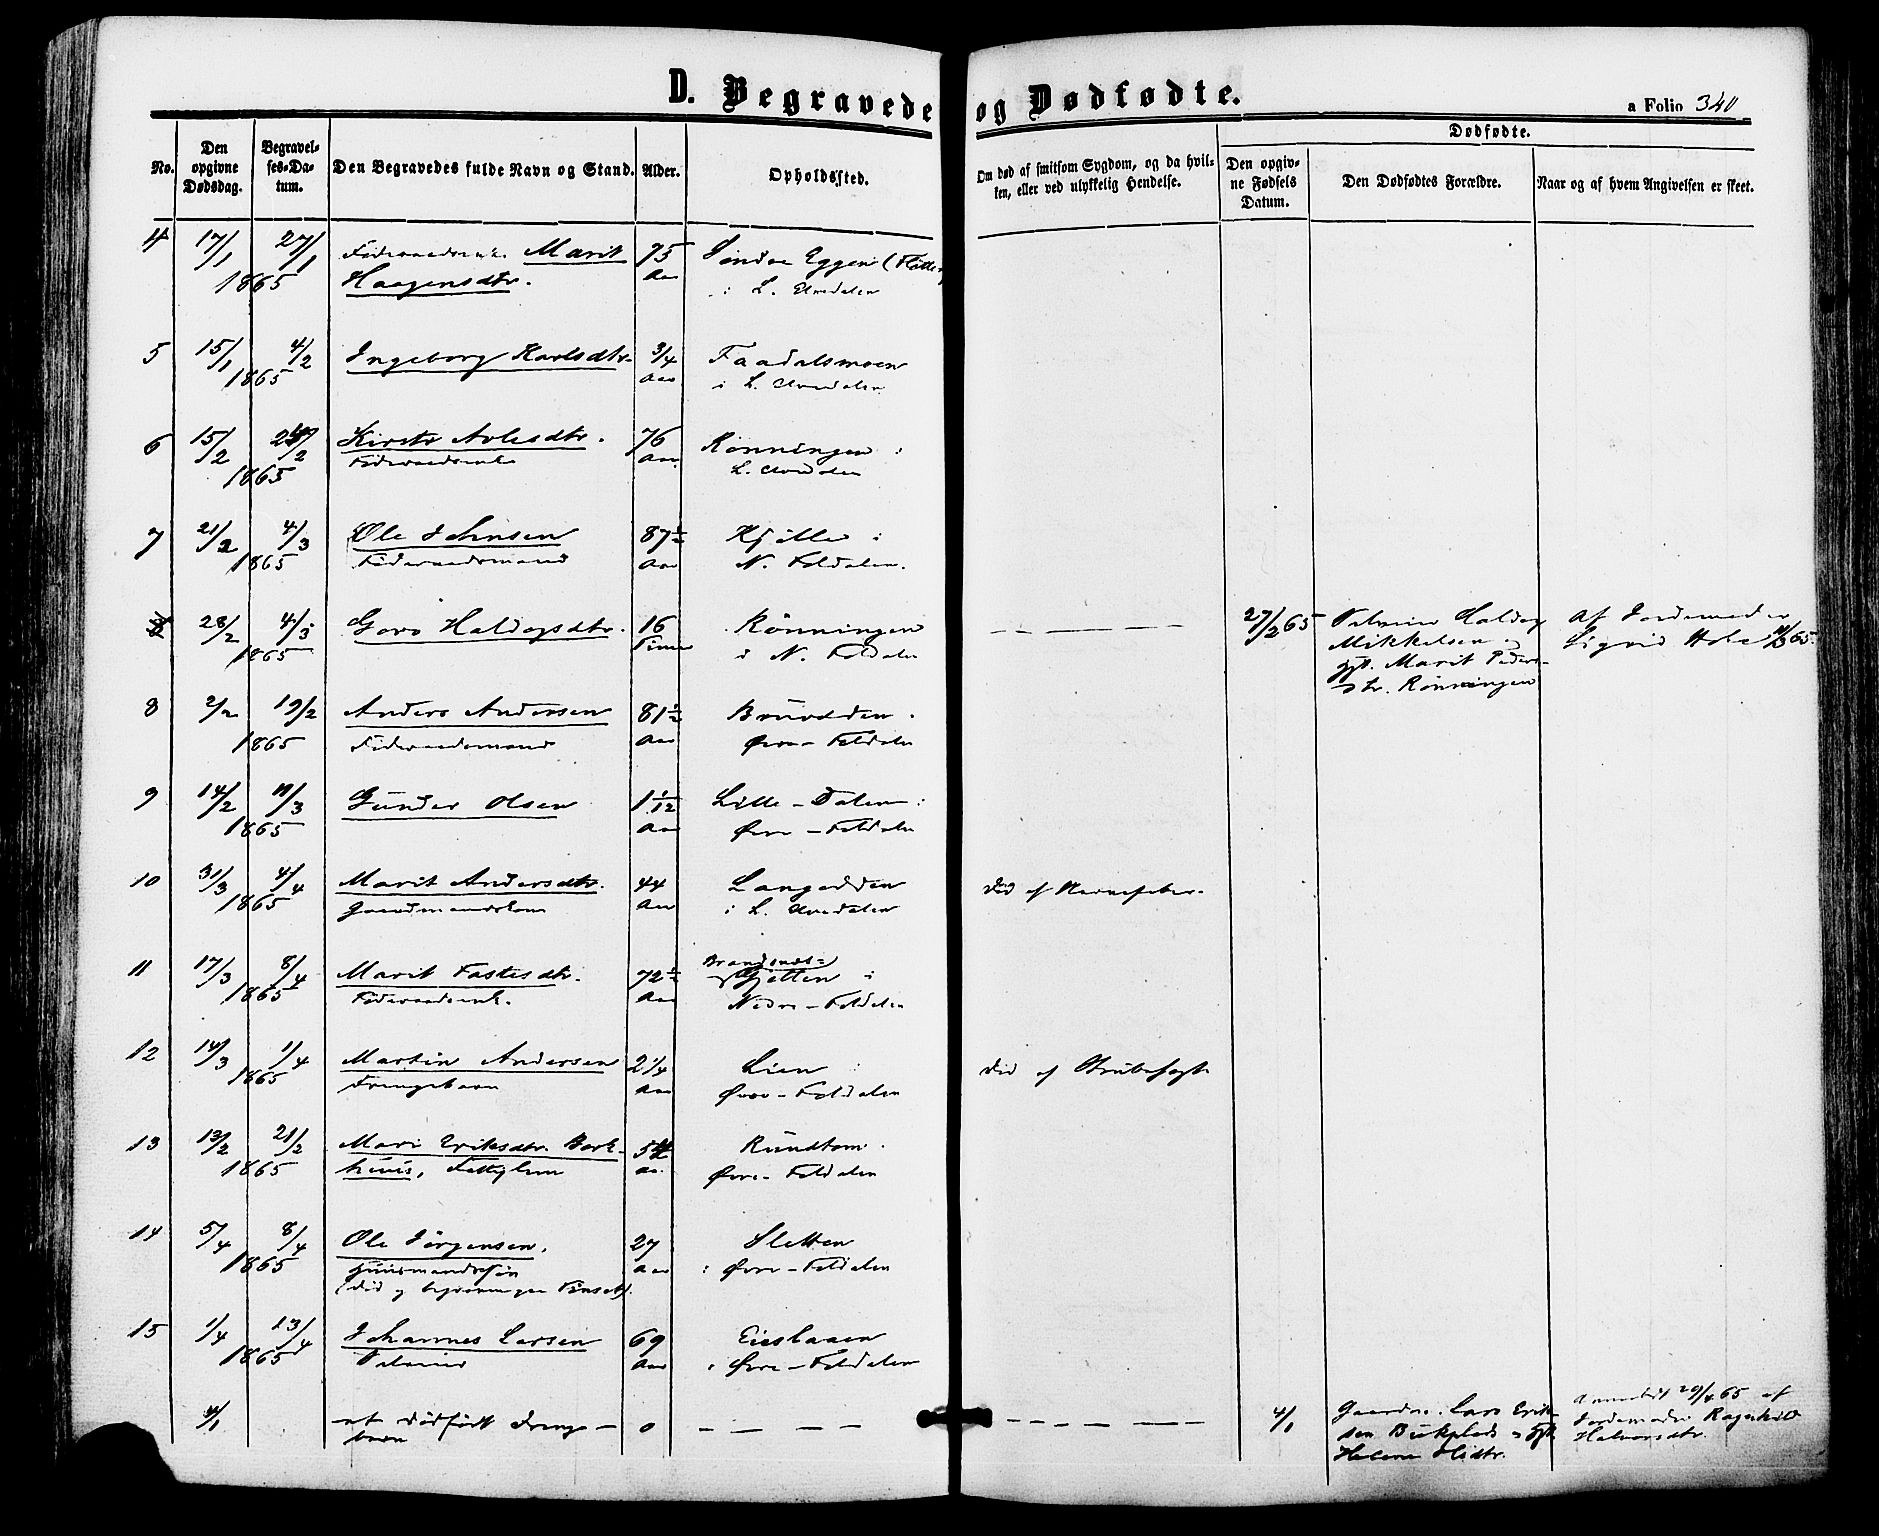 D. Begravede og Dødfødte.
a Folio 340
Dødfødte.
No.
Den opgivne Dødsdag.
Begravelses-Datum.
Den Begravedes fulde Navn og Stand.
Alder.
Opholdssted.
Om død af smitsom Sygdom, og da hvilken, eller ved ulykkelig Hendelse.
Den opgivne Fødsels Datum.
Den Dødfødtes Forældre.
Naar og af hvem Angivelsen er skeet.
4 17/1 27/1 Marit 75 Søndre Eggen
1865 Haagensdtr. Aar i L. Elvedalen
5 15/1 4/2 Ingeborg Karlsdtr. 3/4 Faadalsmoen
1865 Aar i L. Elvedalen
6 15/2 2/2 76 Rønningen i
1865 Aar L. Elvedalen
7 21/2 4/3 Ole Johnsen 87½ i
1865 Føderaadsmand Aar N. Foldalen.
28/2 4/3 Goro Haldogsdtr. 16 Rønningen 27/2 65 Haldog Af Jordemoder
1865 Timer i N. Foldalen Mikkelsen og Sigrid
Marit Peders-
dtr. Rønningen
8 2/2 19/2 Anders Andersen 81½
1865 Føderaadsmand Aar Øvre-Foldalen
9 14/2 11/3 Gunder Olsen 1 1/12 Lille-Dalen i
1865 Aar Øvre-Foldalen
10 31/3 4/4 Marit Andersdtr. 44 Langødden Død af Nervefeber.
1865 Gaardmandskone Aar i L. Elvedalen
11 17/3 8/4 Marit Fastesdtr. 72½ Gjetten i
1865 Aar Nedre-Foldalen
12 14/3 1/4 Martin Andersen 2¼ Lien i Død af Strubehoste
1865 Drengebarn Aar Øvre-Foldalen
13 13/2 21/2 Mari Eriksdtr. Bark- Rundtom
1865 huus, Fattiglem Aar Øvre-Foldalen
14 5/4 8/4 Ole Jørgensen, 27 Sletten
1865 Huusmandssøn Aar i Øvre-Foldalen
(død og
15 1/4 13/4 Johannes Larsen 69
1865 Aar i Øvre-Foldalen
4/1 et dødfødt Drenge- 0 4/1 Lars Erik- Anmeldt 29/4 65 af
barn sen Jordemoder Ragnhild
Helene Halvorsdtr.